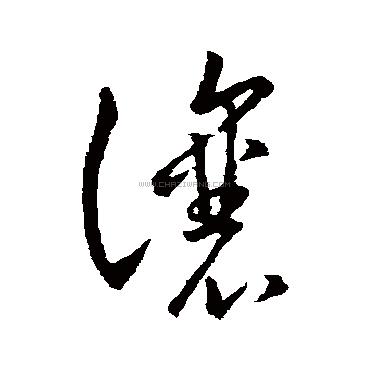 讓
WWW.CHAZIWANG.COM